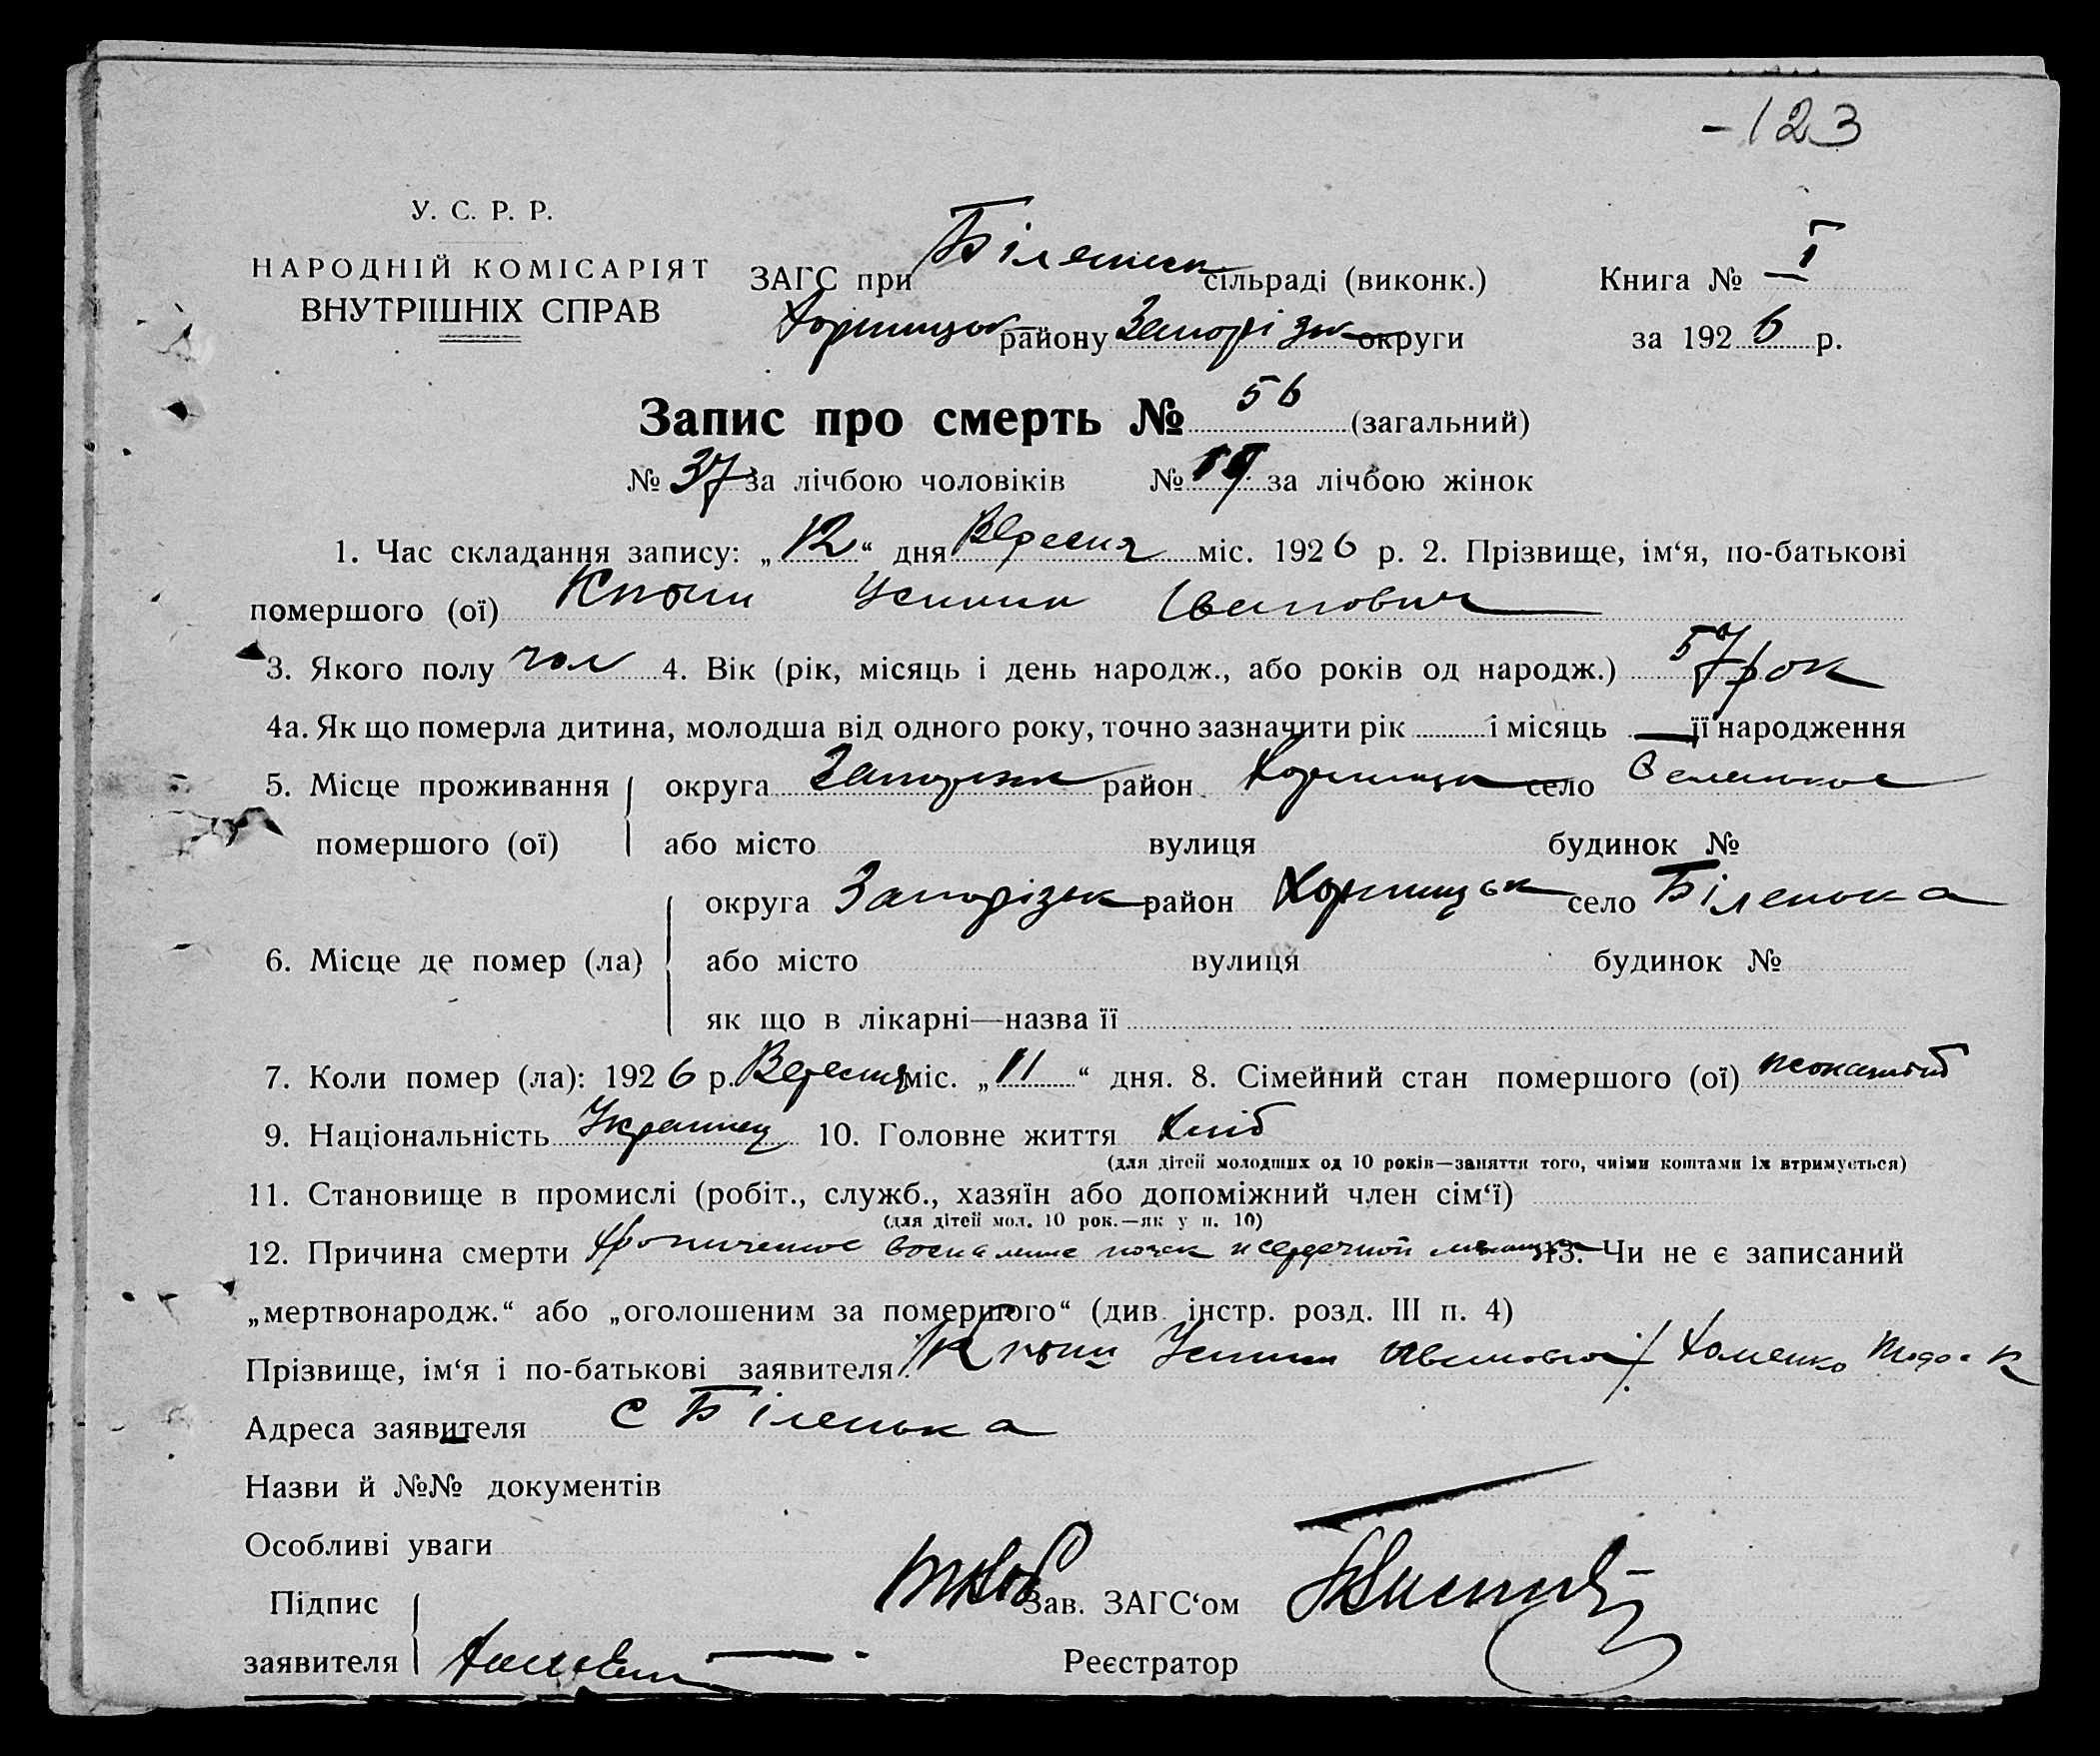 -123
У. С. Р. Р.
НАРОДНІЙ КОМІСАРІЯТ
ВНУТРІШНІХ СПРАВ
ЗАГС при Біленськ сільраді (виконк.)
Хортицьк району Запорізьк округи
Книга № I
за 1926 р.
Запис про смерть № 56 (загальний)
№ 37 за лічбою чоловіків № 19 за лічбою жінок
1. Час складання запису: „12“ дня Вересня міс. 1926 р. 2. Прізвище, ім‘я, по-батькові
помершого (ої) Іванович
3. Якого полу чол 4. Вік (рік, місяць і день народж., або років од народж.) 57 рок
4а. Як що померла дитина, молодша від одного року, точно зазначити рік і місяць — її народження
5. Місце проживання округа район Хортицьк село
помершого (ої) або місто вулиця будинок №
округа Запорізьк район Хортицьк село Біленька
6. Місце де помер (ла) або місто вулиця будинок №
як що в лікарні—назва її
7. Коли помер (ла): 1926 р. Вересня міс. „11“ дня. 8. Сімейний стан помершого (ої)
9. Національність Украинец 10. Головне життя Хліб
(для дітей молодших од 10 років—заняття того, чиїми коштами їх втримується)
11. Становище в промислі (робіт., служб., хазяїн або допоміжний член сім‘ї)
(для дітей мол. 10 рок.—як у п. 10)
12. Причина смерти Хроническое воспаление почек и сердечной 13. Чи не є записаний
„мертвонародж.“ або „оголошеним за помершого“ (див. інстр. розд. III п. 4)
Прізвище, ім‘я і по-батькові заявителя Хоменко
Адреса заявителя с Біленька
Назви й №№ документів
Особливі уваги
Підпис
заявителя
Зав. ЗАГС‘ом
Реєстратор